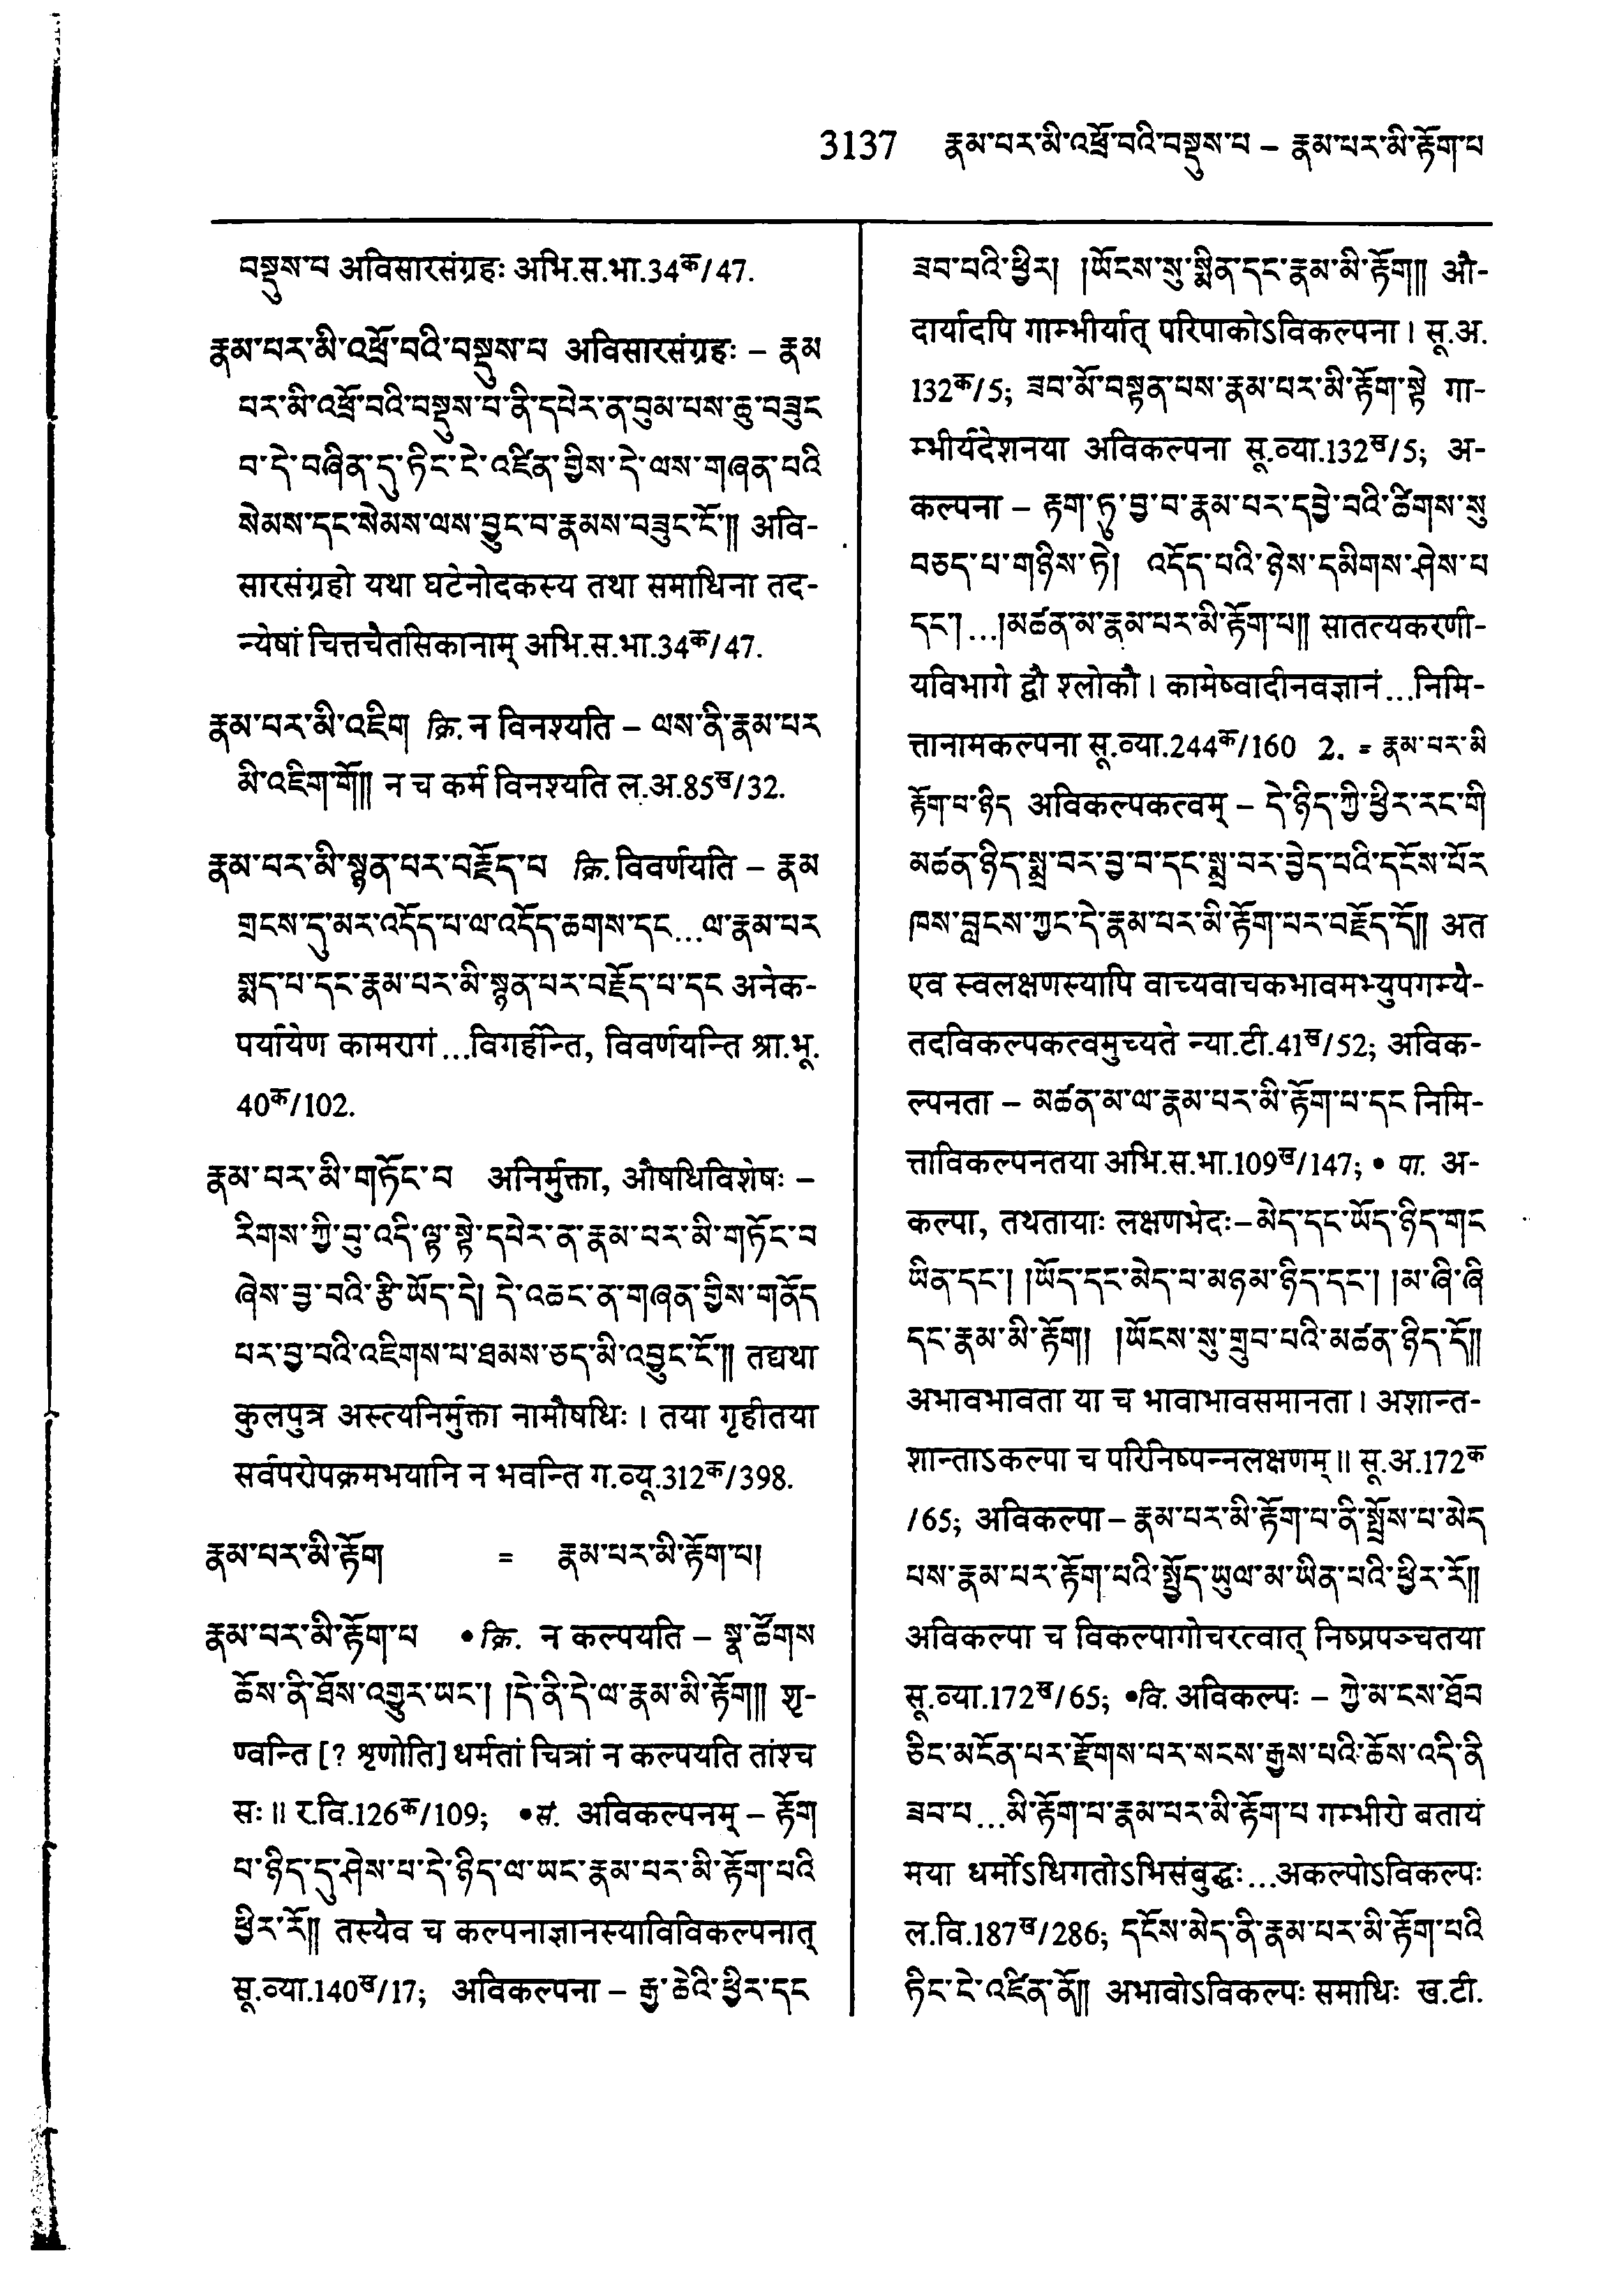 3137 རྣམ་པར་མི་འཕྲོ་བའི་བསྡུས་པ – རྣམ་པར་མི་རྟོག་པ
བསྡུས་པ अविसारसंग्रहः अभि.स.भा.34क/47.
རྣམ་པར་མི་འཕྲོ་བའི་བསྡུས་པ अविसारसंग्रहः – རྣམ
པར་མི་འཕྲོ་བའི་བསྡུས་པ་ནི་དཔེར་ན་བུམ་པས་ཆུ་བཟུང
བ་དེ་བཞིན་དུ་ཏིང་ངེ་འཛིན་གྱིས་དེ་ལས་གཞན་པའི
སེམས་དང་སེམས་ལས་བྱུང་བ་རྣམས་བཟུང་ངོ་༎ अवि-
सारसंग्रहो यथा घटेनोदकस्य तथा समाधिना तद-
न्येषां चित्तचैतसिकानाम् अभि.स.भा.34क/47.
རྣམ་པར་མི་འཇིག क्रि. न विनश्यति – ལས་ནི་རྣམ་པར
མི་འཇིག་གོ༎ न च कर्म विनश्यति ल.अ.85ख/32.
རྣམ་པར་མི་སྙན་པར་བརྗོད་པ क्रि. विवर्णयति – རྣམ
གྲངས་དུ་མར་འདོད་པ་ལ་འདོད་ཆགས་དང...ལ་རྣམ་པར
སྨད་པ་དང་རྣམ་པར་མི་སྙན་པར་བརྗོད་པ་དང अनेक-
पर्यायेण कामरागं ...विगर्हन्ति, विवर्णयन्ति श्रा.भू.
40क/102.
རྣམ་པར་མི་གཏོང་བ अनिर्मुक्ता, औषधिविशेषः –
རིགས་ཀྱི་བུ་འདི་ལྟ་སྟེ་དཔེར་ན་རྣམ་པར་མི་གཏོང་བ
ཞེས་བྱ་བའི་རྩི་ཡོད་དེ། དེ་འཆང་ན་གཞན་གྱིས་གནོད
པར་བྱ་བའི་འཇིགས་པ་ཐམས་ཅད་མི་འབྱུང་ངོ་༎ तद्यथा
कुलपुत्र अस्त्यनिर्मुक्ता नामौषधिः । तया गृहीतया
सर्वपरोपक्रमभयानि न भवन्ति ग.व्यू.312क/398.
རྣམ་པར་མི་རྟོག = རྣམ་པར་མི་རྟོག་པ།
རྣམ་པར་མི་རྟོག་པ • क्रि. न कल्पयति – སྣ་ཚོགས
ཆོས་ནི་ཐོས་འགྱུར་ཡང་། །དེ་ནི་དེ་ལ་རྣམ་མི་རྟོག༎ शृ-
ण्वन्ति [? शृणोति] धर्मतां चित्रां न कल्पयति तांश्च
सः ॥ र.वि.126क/109; • सं. अविकल्पनम् – རྟོག
པ་ཉིད་དུ་ཤེས་པ་དེ་ཉིད་ལ་ཡང་རྣམ་པར་མི་རྟོག་པའི
ཕྱིར་རོ༎ तस्यैव च कल्पनाज्ञानस्याविविकल्पनात्
सू.व्या.140ख/17; अविकल्पना – རྒྱ་ཆེའི་ཕྱིར་དང
ཟབ་པའི་ཕྱིར། །ཡོངས་སུ་སྨིན་དང་རྣམ་མི་རྟོག༎ औ-
दार्यादपि गाम्भीर्यात् परिपाकोऽविकल्पना । सू.अ.
132क/5; ཟབ་མོ་བསྟན་པས་རྣམ་པར་མི་རྟོག་སྟེ गा-
म्भीर्यदेशनया अविकल्पना सू.व्या.132ख/5; अ-
कल्पना – རྟག་ཏུ་བྱ་བ་རྣམ་པར་དབྱེ་བའི་ཚིགས་སུ
བཅད་པ་གཉིས་ཏེ། འདོད་པའི་ཉེས་དམིགས་ཤེས་པ
དང་། ...།མཚན་མ་རྣམ་པར་མི་རྟོག་པ༎ सातत्यकरणी-
यविभागे द्वौ श्लोकौ । कामेष्वादीनवज्ञानं...निमि-
त्तानामकल्पना सू.व्या.244क/160 2. = རྣམ་པར་མི
རྟོག་པ་ཉིད अविकल्पकत्वम् – དེ་ཉིད་ཀྱི་ཕྱིར་རང་གི
མཚན་ཉིད་སྨྲ་བར་བྱ་བ་དང་སྨྲ་བར་བྱེད་པའི་དངོས་པོར
ཁས་བླངས་ཀྱང་དེ་རྣམ་པར་མི་རྟོག་པར་བརྗོད་དོ༎ अत
एव स्वलक्षणस्यापि वाच्यवाचकभावमभ्युपगम्यै-
तदविकल्पकत्वमुच्यते न्या.टी.41ख/52; अविक-
ल्पनता – མཚན་མ་ལ་རྣམ་པར་མི་རྟོག་པ་དང निमि-
त्ताविकल्पनतया अभि.स.भा.109ख/147; • पा. अ-
कल्पा, तथतायाः लक्षणभेदः – མེད་དང་ཡོད་ཉིད་གང
ཡིན་དང་། །ཡོད་དང་མེད་པ་མཉམ་ཉིད་དང་། །མ་ཞི་ཞི
དང་རྣམ་མི་རྟོག། །ཡོངས་སུ་གྲུབ་པའི་མཚན་ཉིད་དོ༎
अभावभावता या च भावाभावसमानता । अशान्त-
शान्ताऽकल्पा च परिनिष्पन्नलक्षणम् ॥ सू.अ.172क
/65; अविकल्पा – རྣམ་པར་མི་རྟོག་པ་ནི་སྤྲོས་པ་མེད
པས་རྣམ་པར་རྟོག་པའི་སྤྱོད་ཡུལ་མ་ཡིན་པའི་ཕྱིར་རོ༎
अविकल्पा च विकल्पागोचरत्वात् निष्प्रपञ्चतया
सू.व्या.172ख/65; •वि. अविकल्पः – ཀྱེ་མ་ངས་ཐོབ
ཅིང་མངོན་པར་རྫོགས་པར་སངས་རྒྱས་པའི་ཆོས་འདི་ནི
ཟབ་པ...མི་རྟོག་པ་རྣམ་པར་མི་རྟོག་པ गम्भीरो बतायं
मया धर्मोऽधिगतोऽभिसंबुद्धः...अकल्पोऽविकल्पः
ल.वि.187ख/286; དངོས་མེད་ནི་རྣམ་པར་མི་རྟོག་པའི
ཏིང་ངེ་འཛིན་ནོ༎ अभावोऽविकल्पः समाधिः ख.टी.